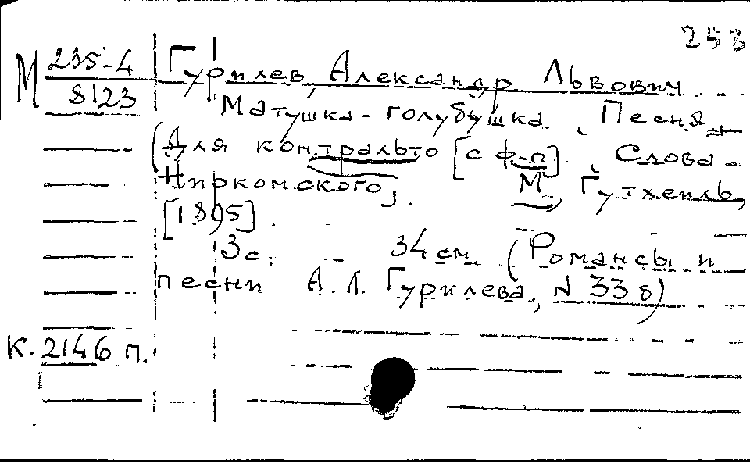 253
М 235-4
8123
Гурилев, Александр Львович.
Матушка-голубушка. Песня
(Для контральто [с ф-п]. Слова
Ниркомского). М., Гутхейль,
[1895].
3 с. 34 см. (Романсы и
песни А. Л. Гурилева, N 338)
К. 2146 п.